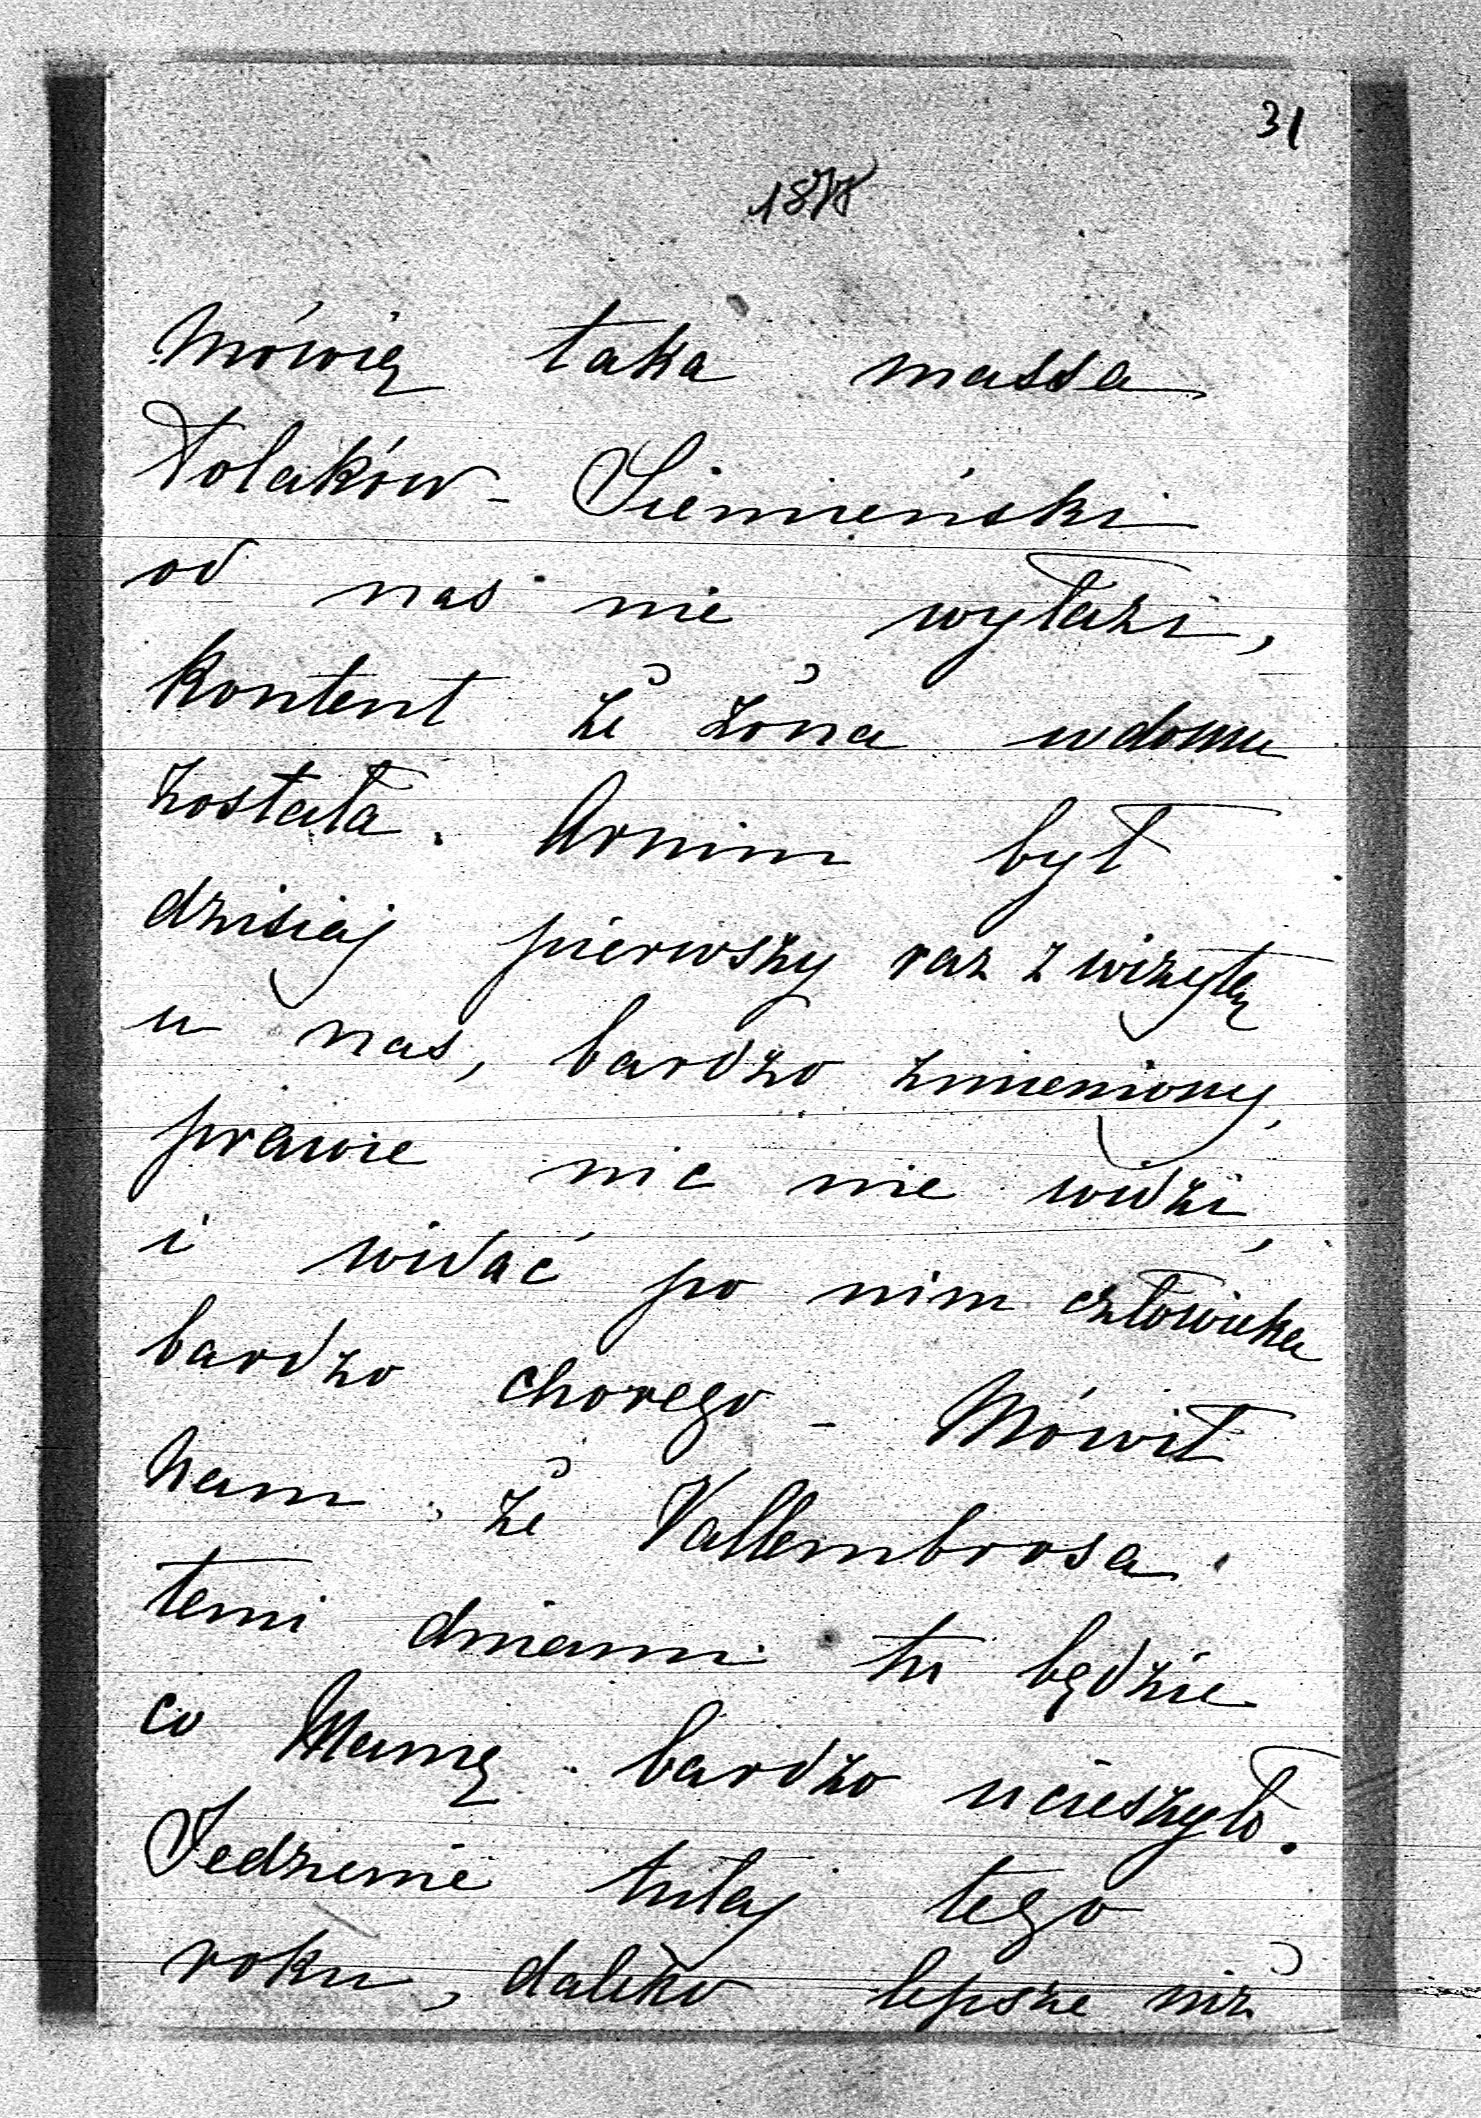 31
1878
mówię taka massa
Polaków – Siemieński
od nas nie wyłazi,
kontent że żona w domu
została. Arnim był
dzisiaj pierwszy raz z wizytę
u nas, bardzo zmieniony,
prawie nic nie widzi,
i widać po nim człowieka
bardzo chorego – Mówił
nam że Vallembrosa
temi dniami tu będzie
co Mamę bardzo ucieszyło.
Jedzenie tutaj tego
roku, daleko lepsze niż